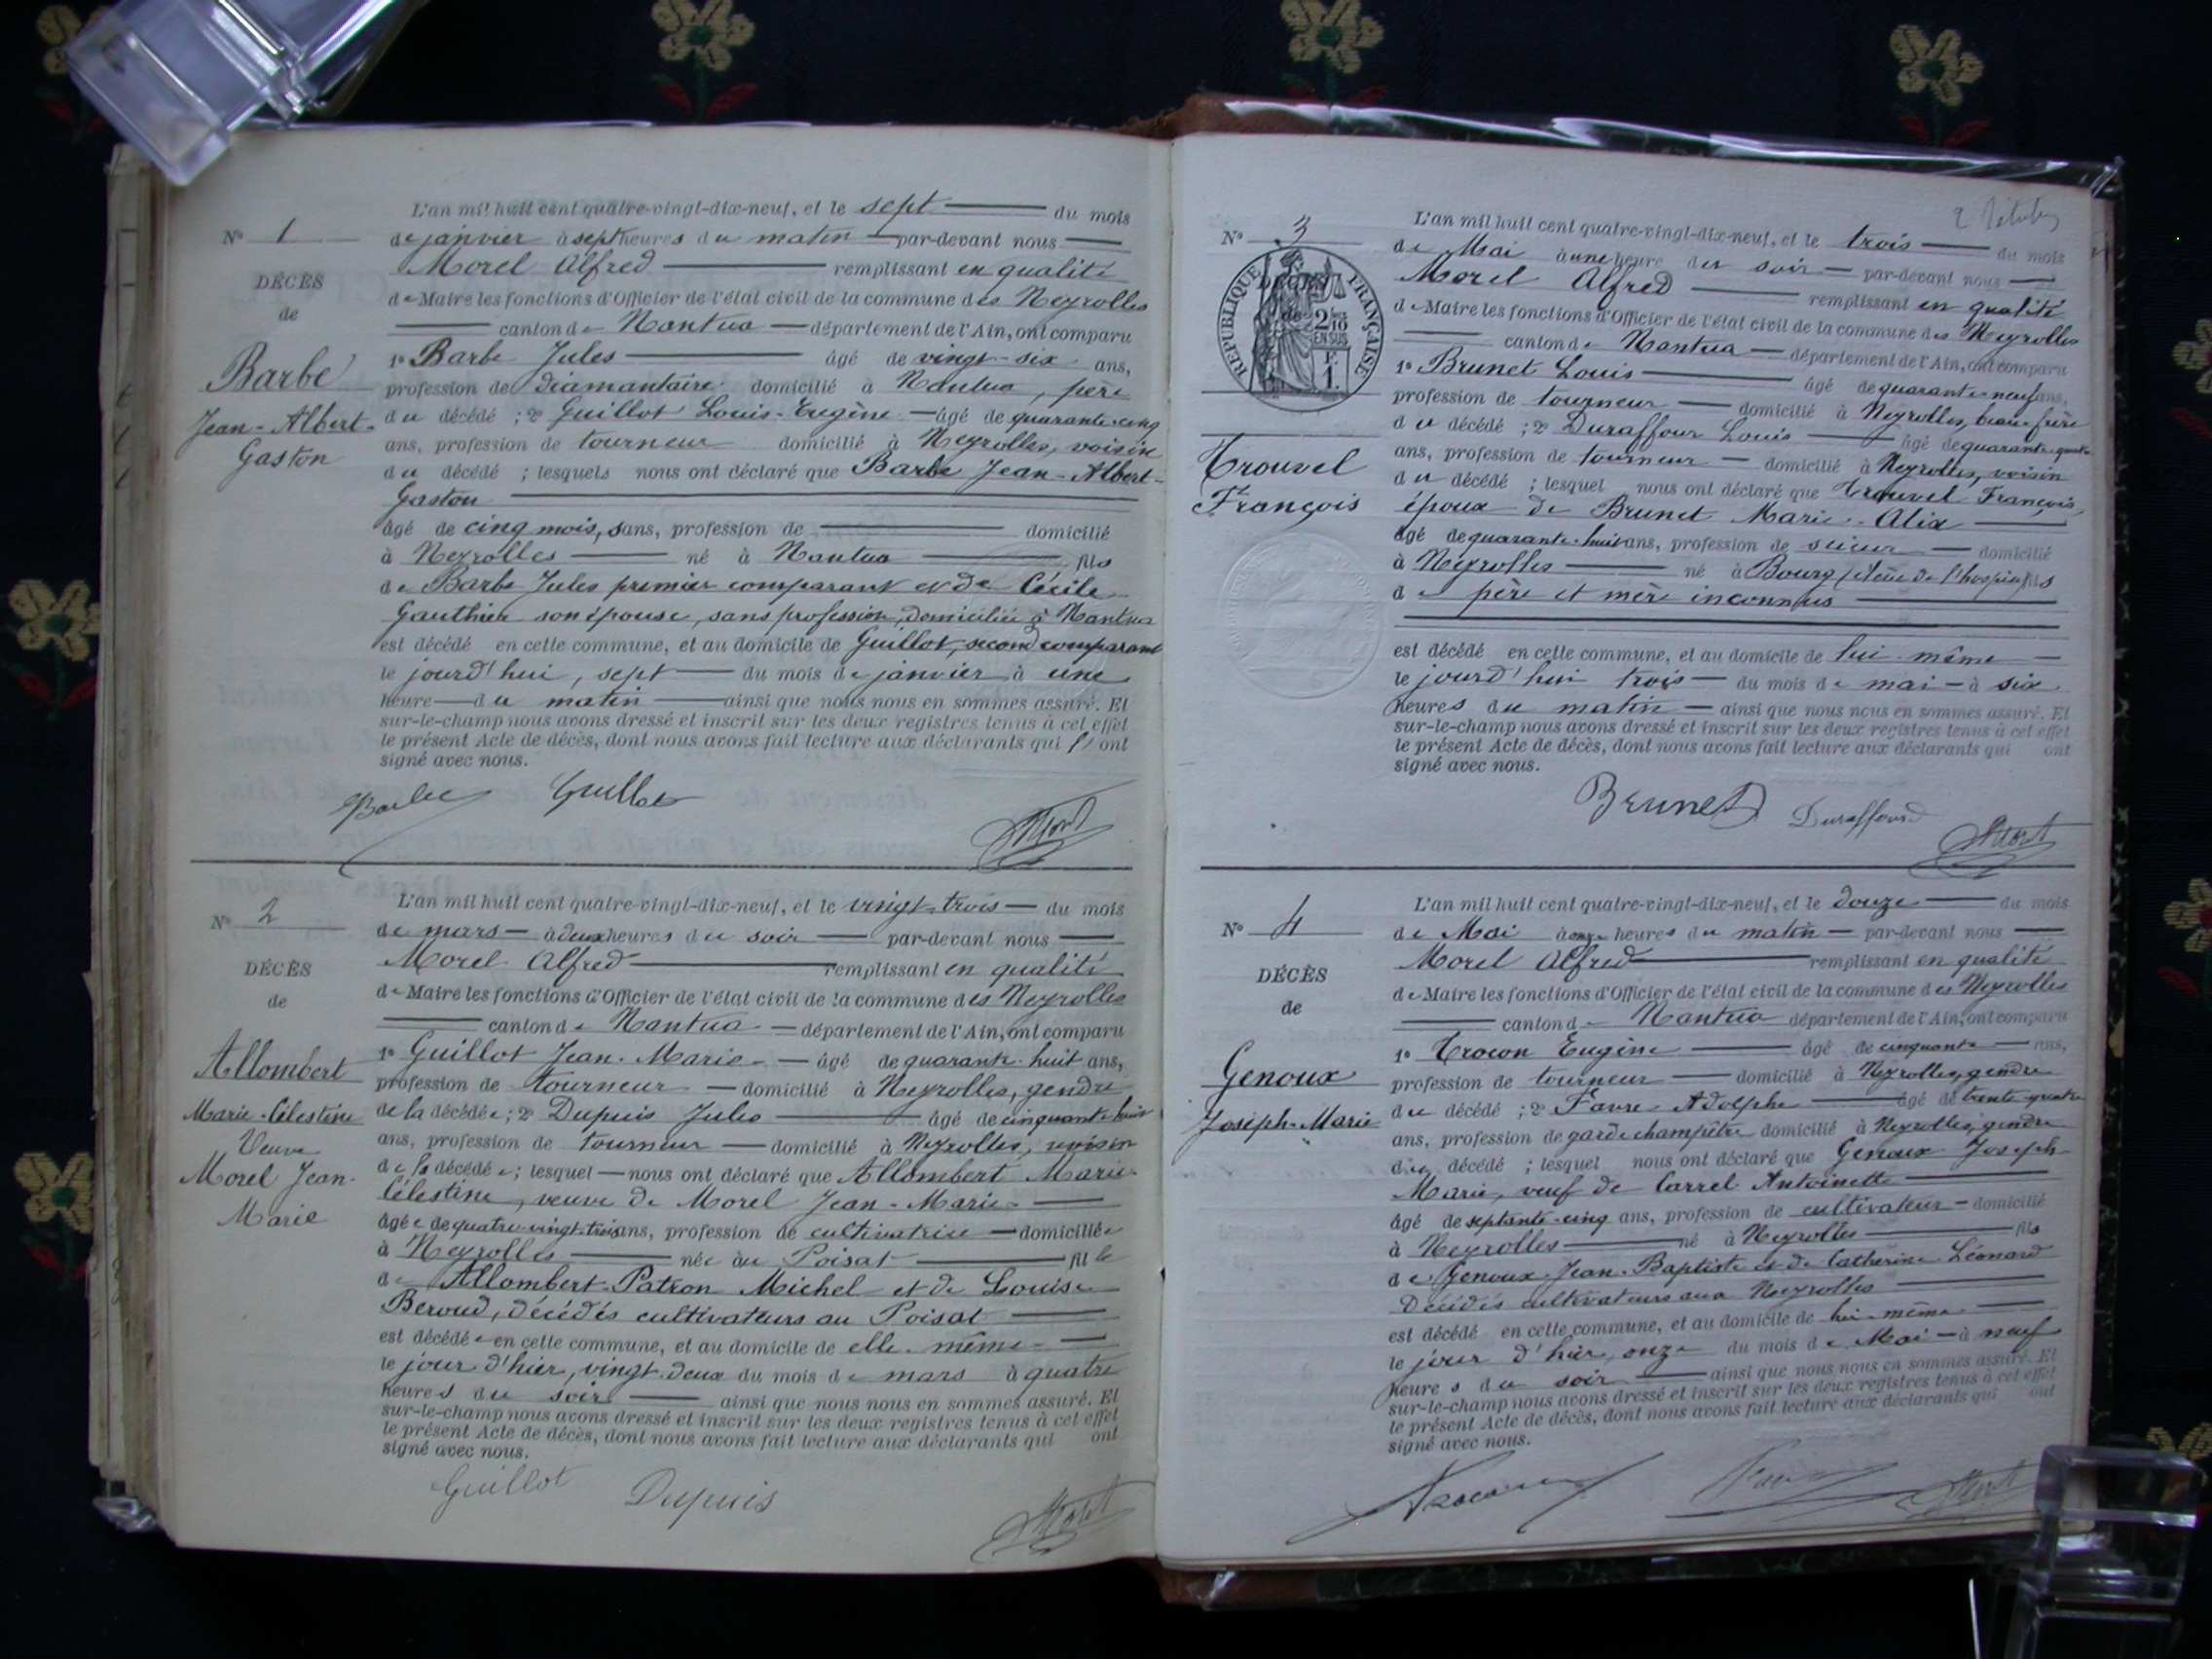 L'an mil huit cent quatre-vingt-dix-neuf, et le sept du mois
N° 1
de janvier à sept heures du matin par-devant nous
Morel Alfred remplissant en qualité
DÉCÈS
de
de Maire les fonctions d'Officier de l'état civil de la commune des Neyrolles
canton de Nantua département de l'Ain, ont comparu
Barbe
Jean-Albert-
Gaston
1° Barbe Jules âgé de vingt-six ans,
profession de diamantaire domicilié à Nantua, père
du décédé ; 2° Guillot Louis-Eugène âgé de quarante-cinq
ans, profession de tourneur domicilié à Neyrolles, voisin
du décédé ; lesquels nous ont déclaré que Barbe Jean-Albert-
Gaston
âgé de cinq mois, sans, profession de domicilié
à Neyrolles né à Nantua fils
de Barbe Jules premier comparant et de Cécile
Gauthier son épouse, sans profession, domiciliée à Nantua
est décédé en cette commune, et au domicile de Guillot, second comparant
le jourd'hui, sept du mois de janvier à une
heure du matin ainsi que nous nous en sommes assuré. Et
sur-le-champ nous avons dressé et inscrit sur les deux registres tenus à cet effet
le présent Acte de décès, dont nous avons fait lecture aux déclarants qui l'ont
signé avec nous.
Barbe Guillot
AMorel
L'an mil huit cent quatre-vingt-dix-neuf, et le vingt-trois du mois
N° 2
de mars à deux heures du soir par-devant nous
Morel Alfred remplissant en qualité
DÉCÈS
de
de Maire les fonctions d'Officier de l'état civil de la commune des Neyrolles
canton de Nantua département de l'Ain, ont comparu
Allombert
Marie-Célestine
Veuve
Morel Jean-
Marie
1° Guillot Jean-Marie âgé de quarante-huit ans,
profession de tourneur domicilié à Neyrolles, gendre
de la décédée ; 2° Dupuis Jules âgé de cinquante-huit
ans, profession de tourneur domicilié à Neyrolles, voisin
de la décédée ; lesquel nous ont déclaré que Allombert Marie-
Célestine, veuve de Morel Jean-Marie
âgée de quatre-vingt-trois ans, profession de cultivatrice domiciliée
à Neyrolles née au Poisat fille
de Allombert-Patron Michel et de Louise
Beroud, décédés cultivateurs au Poisat
est décédée en cette commune, et au domicile de elle-même
le jour d'hier, vingt-deux du mois de mars à quatre
heures du soir ainsi que nous nous en sommes assuré. Et
sur-le-champ nous avons dressé et inscrit sur les deux registres tenus à cet effet
le présent Acte de décès, dont nous avons fait lecture aux déclarants qui ont
signé avec nous.
Guillot Dupuis
AMorel
L'an mil huit cent quatre-vingt-dix-neuf, et le trois du mois
N° 3
de Mai à une heure du soir par-devant nous
Morel Alfred remplissant en qualité
DÉCÈS
de
RÉPUBLIQUE FRANÇAISE
2/10
EN SUS
F.
1.
de Maire les fonctions d'Officier de l'état civil de la commune des Neyrolles
canton de Nantua département de l'Ain, ont comparu
Trouvel
François
1° Brunet Louis âgé de quarante-neuf ans,
profession de tourneur domicilié à Neyrolles, beau-frère
du décédé ; 2° Duraffour Louis âgé de quarante-quatre
ans, profession de tourneur domicilié à Neyrolles, voisin
du décédé ; lesquel nous ont déclaré que Trouvel François,
époux de Brunet Marie-Alix
âgé de quarante-huit ans, profession de scieur domicilié
à Neyrolles né à Bourg, élève de l'hospice fils
de père et mère inconnus
est décédé en cette commune, et au domicile de lui-même
le jourd'hui trois du mois de mai à six
heures du matin ainsi que nous nous en sommes assuré. Et
sur-le-champ nous avons dressé et inscrit sur les deux registres tenus à cet effet
le présent Acte de décès, dont nous avons fait lecture aux déclarants qui ont
signé avec nous.
Brunet Duraffour
AMorel
L'an mil huit cent quatre-vingt-dix-neuf, et le douze du mois
N° 4
de Mai à onze heures du matin par-devant nous
Morel Alfred remplissant en qualité
DÉCÈS
de
de Maire les fonctions d'Officier de l'état civil de la commune des Neyrolles
canton de Nantua département de l'Ain, ont comparu
Genoux
Joseph-Marie
1° Trocon Eugène âgé de cinquante ans,
profession de tourneur domicilié à Neyrolles, gendre
du décédé ; 2° Favre Adolphe âgé de trente-quatre
ans, profession de garde champêtre domicilié à Neyrolles, gendre
du décédé ; lesquel nous ont déclaré que Genoux Joseph-
Marie, veuf de Carrel Antoinette
âgé de septante-cinq ans, profession de cultivateur domicilié
à Neyrolles né à Neyrolles fils
de Genoux Jean-Baptiste et de Catherine Léonard
Décédés cultivateurs aux Neyrolles
est décédé en cette commune, et au domicile de lui-même
le jour d'hier, onze du mois de Mai à neuf
heures du soir ainsi que nous nous en sommes assuré. Et
sur-le-champ nous avons dressé et inscrit sur les deux registres tenus à cet effet
le présent Acte de décès, dont nous avons fait lecture aux déclarants qui ont
signé avec nous.
Trocon Favre AMorel